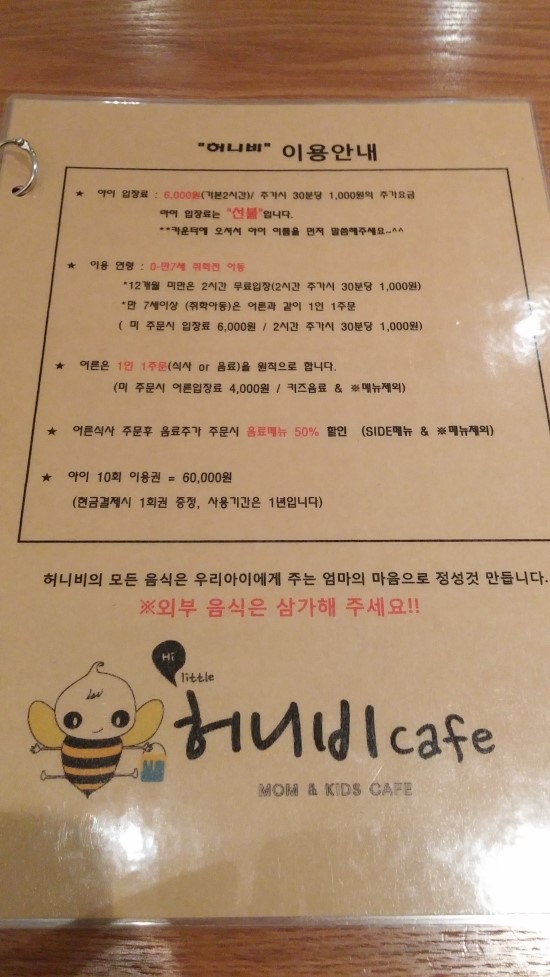 "허니비" 이용안내
★ 아이 입장료 : 6,000원(기본2시간)/ 추가시 30분당 1,000원의 추가요금
아이 입장료는 "선불"입니다.
**카운터에 오셔서 아이 이름을 먼저 말씀해주세요~^^
★ 이용 연령 : 0-만7세 취학전 아동
*12개월 미만은 2시간 무료입장(2시간 추가시 30분당 1,000원)
*만 7세이상 (취학아동)은 어른과 같이 1인 1주문
( 미 주문시 입장료 6,000원 / 2시간 추가시 30분당 1,000원)
★ 어른은 1인 1주문(식사 or 음료)을 원칙으로 합니다.
(미 주문시 어른입장료 4,000원 / 키즈음료 & ※메뉴제외)
★ 어른식사 주문후 음료추가 주문시 음료메뉴 50% 할인 (SIDE메뉴 & ※메뉴제외)
★ 아이 10회 이용권 = 60,000원
(현금결제시 1회권 증정, 사용기간은 1년입니다)
허니비의 모든 음식은 우리아이에게 주는 엄마의 마음으로 정성것 만듭니다.
※외부 음식은 삼가해 주세요!!
Hi
little
허니비 cafe
MOM & KIDS CAFE